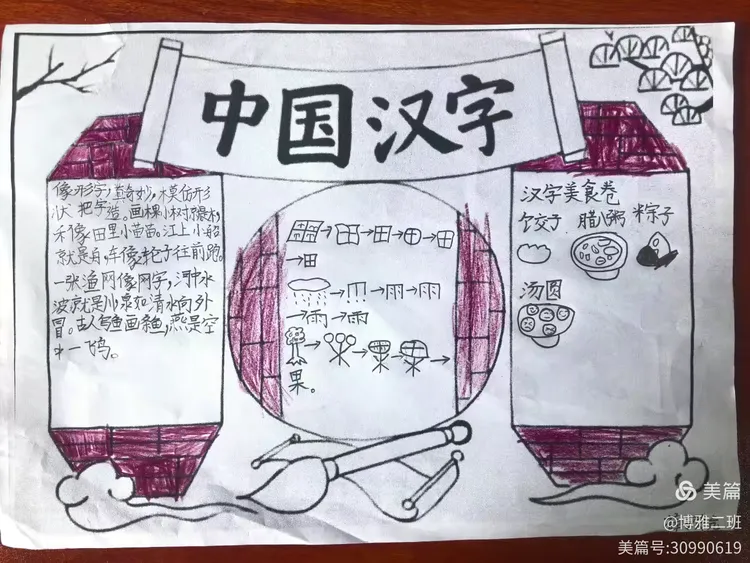 中国汉字
像形字,真奇妙,模仿形
状把字造。画棵小树像木,
禾像田里小苗苗。江上小船
就是舟,车像轮子往前跑。
一张渔网像网字,河中水
波就是小泉如清水向外
冒。古人鸟鱼画鱼,燕是空
中一鸟。
→田→田→田
→田
→雨→雨
→雨→雨
果。
汉字美食卷
饺子 腊八粥 粽子
汤圆
美篇
@博雅二班
美篇号:30990619